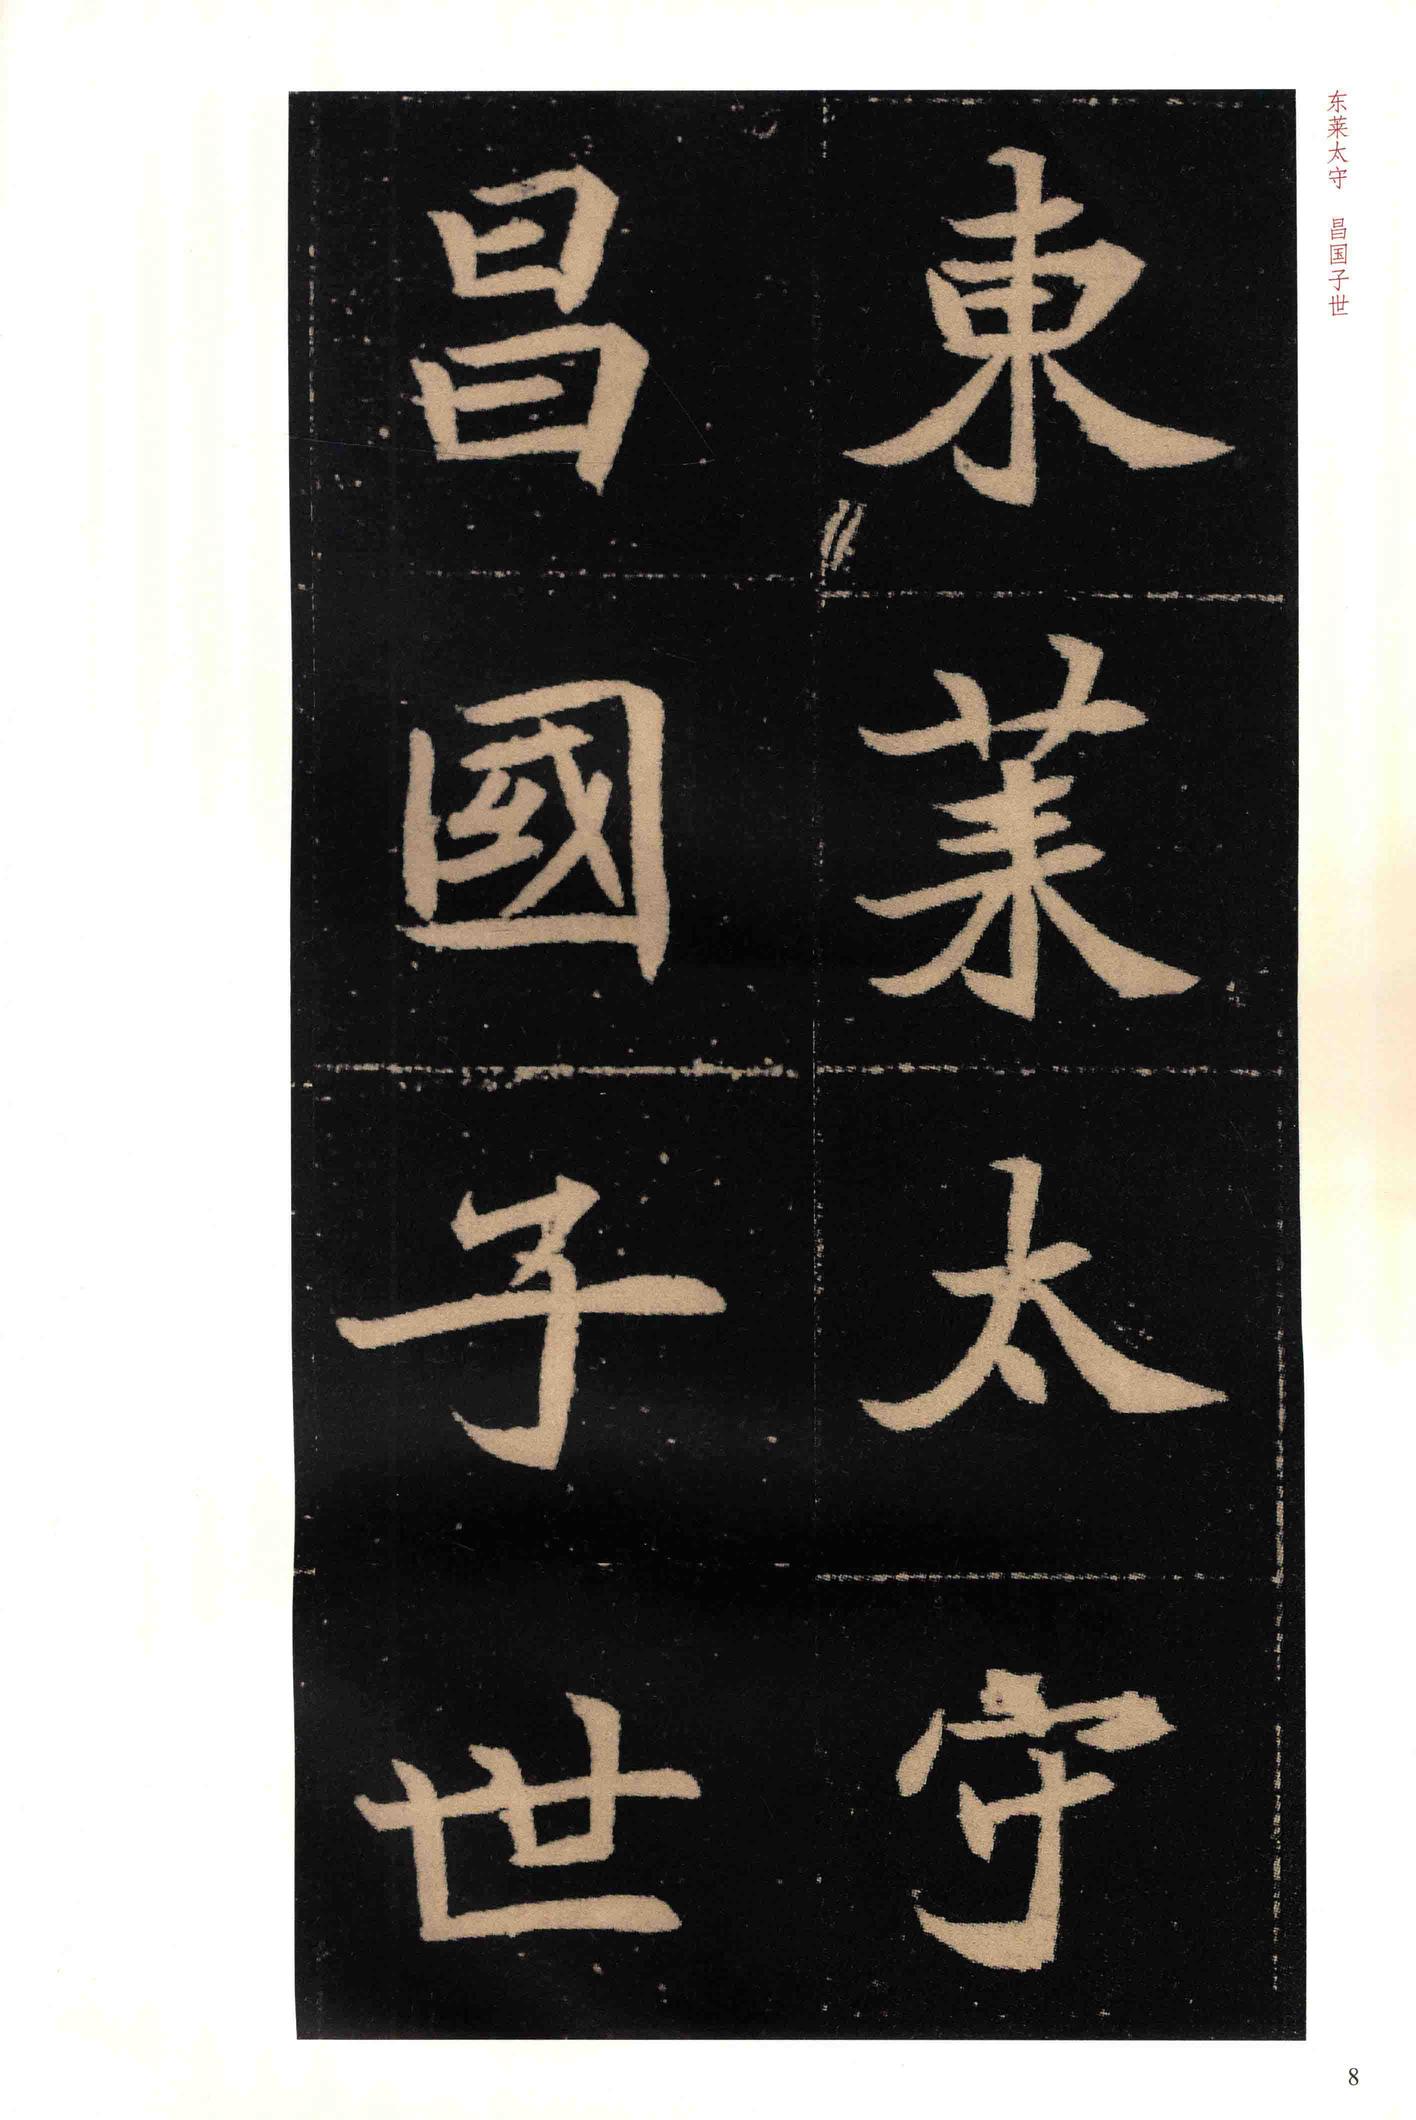 东莱太守 昌国子世
東莱太守
昌國子世
8